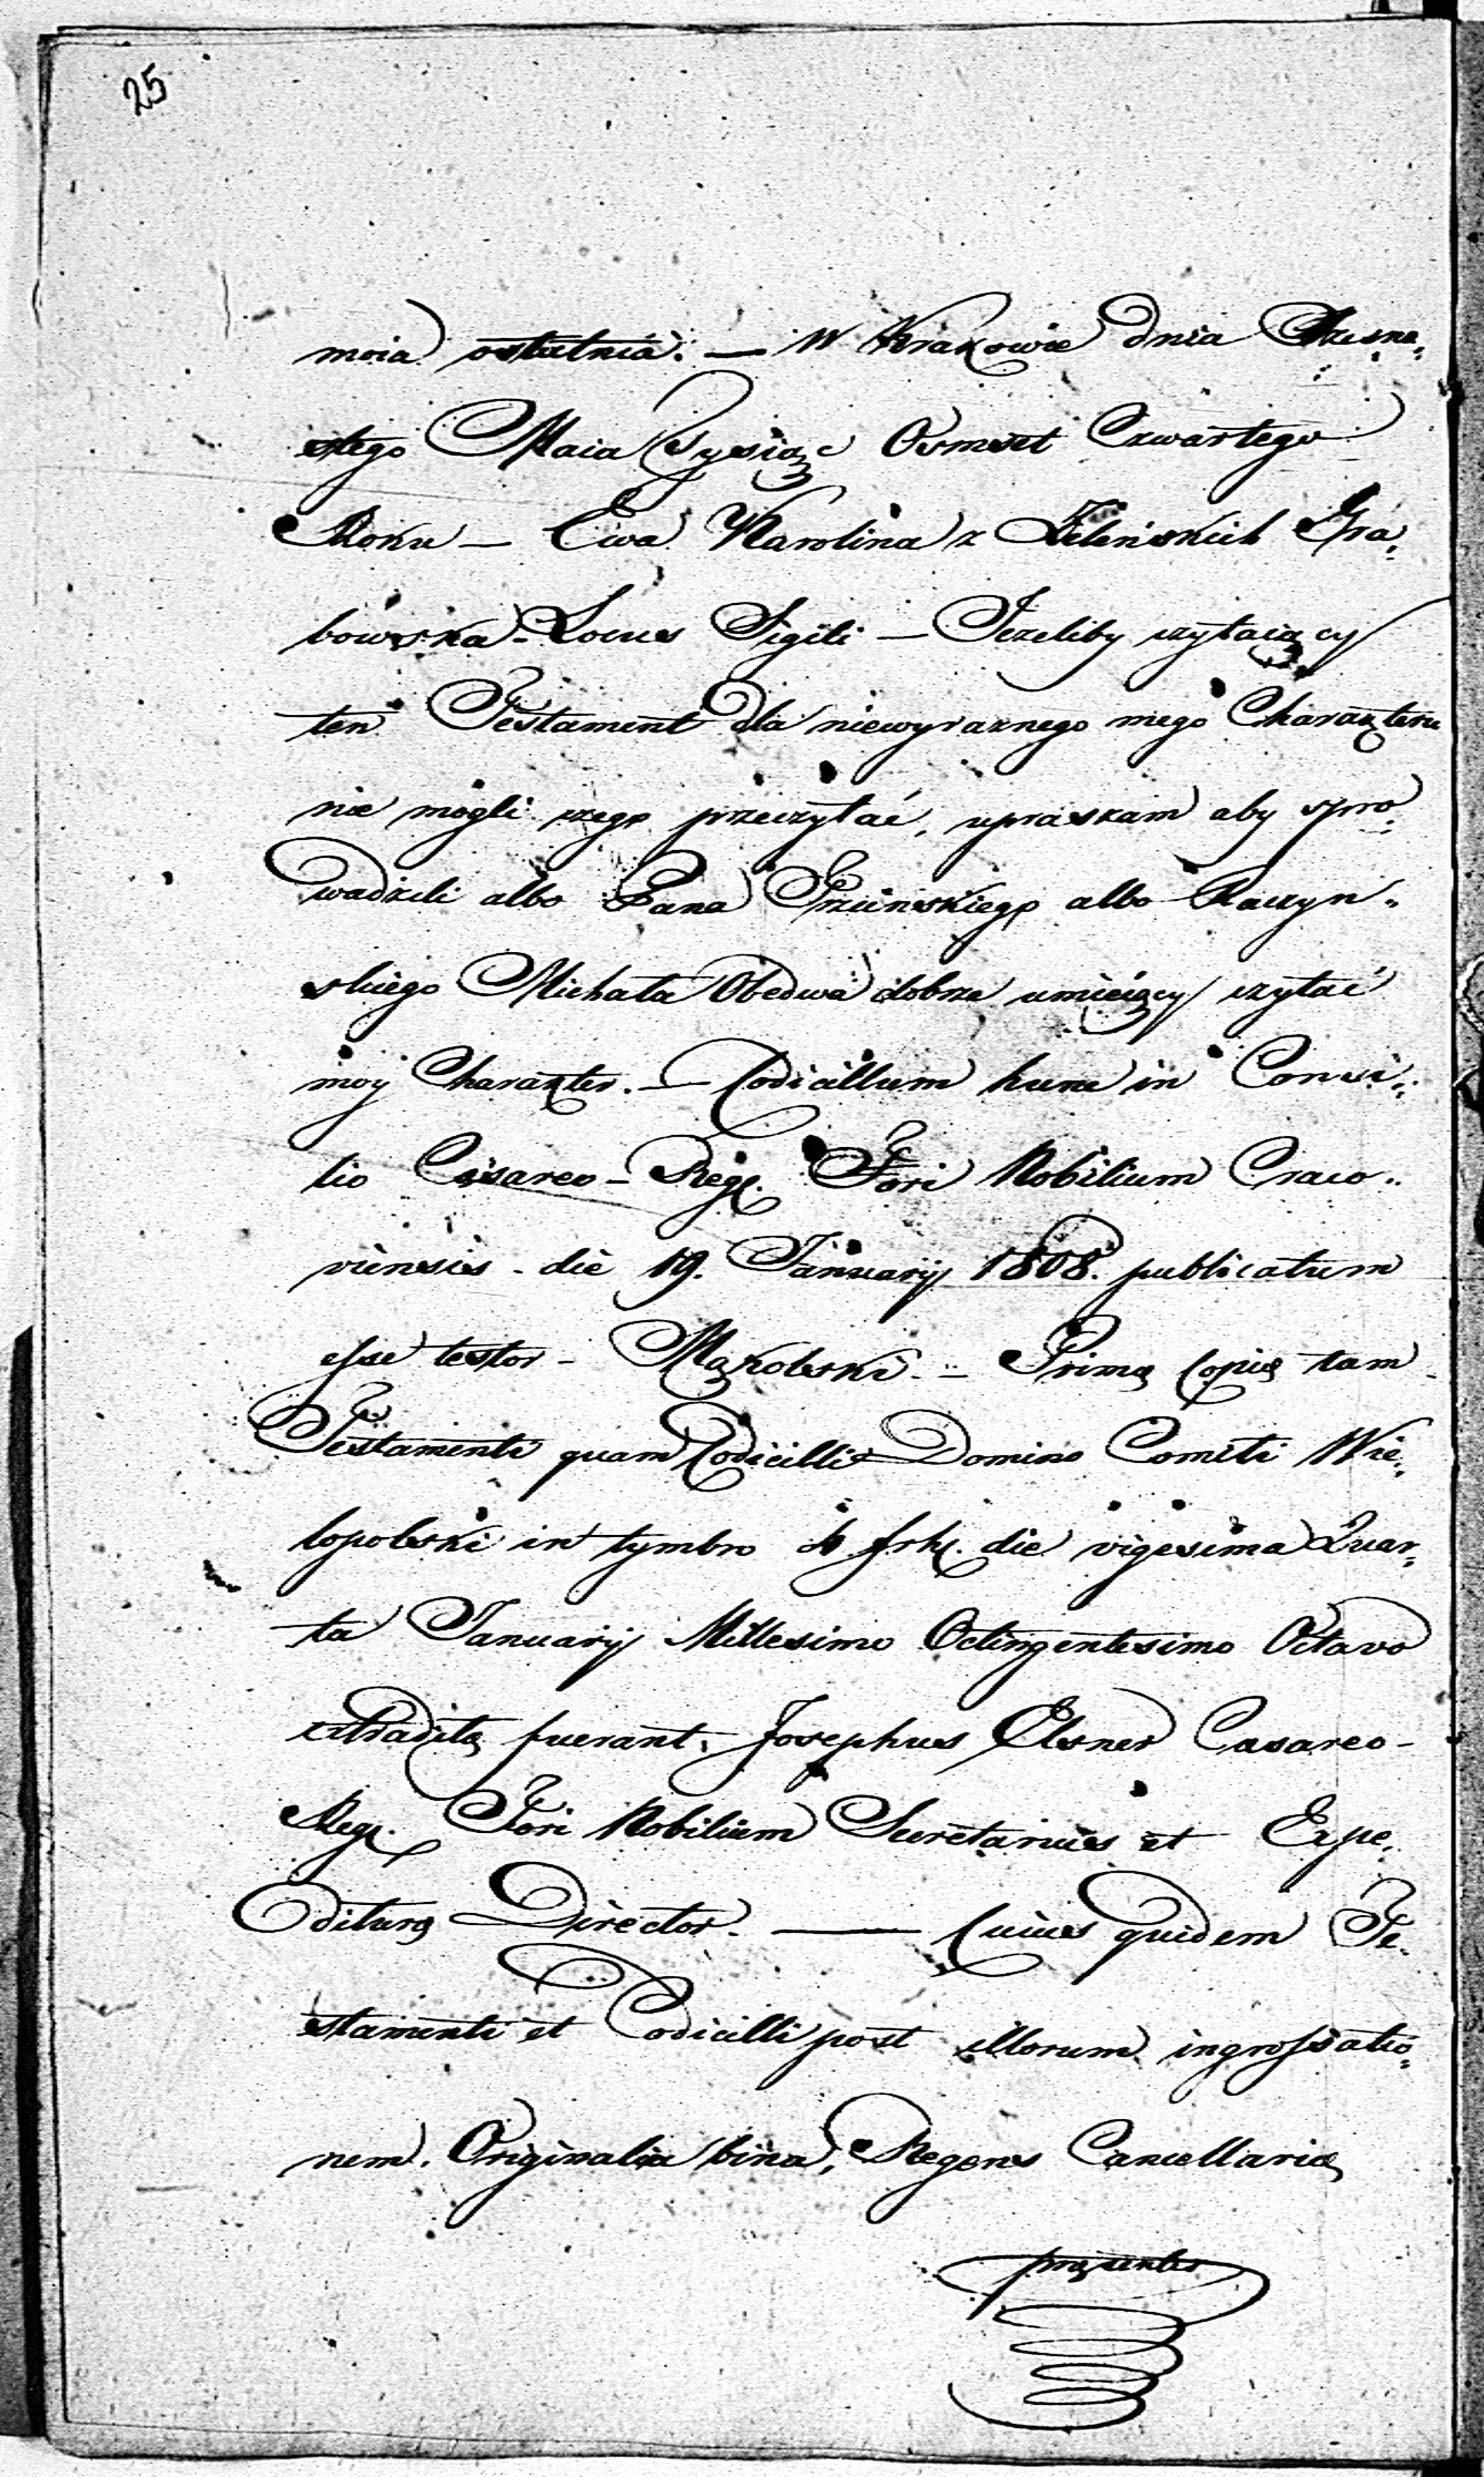 25
moia ostatnia. — W Krakowie dnia Szesna„
stego Maia Tysiąc Osmset Czwartego
Roku — Ewa Karolina z Zeleńskich Gra„
bowska - Locus Sigili — Jezeliby czytaiący
ten Testament dla niewyraznego mego Charakteru
nie mogli czego przeczytać, upraszam aby spro„
wadzili albo Pana albo Raczyn„
skiego Michała Obedwa dobrze umieiący czytać
moy Charakter. — Codicillum hunc in Consi„
lio Cæsareo - Reg. Fori Nobilium Craco„
viensis - die 19. Januarij 1808. publicatum
esse testor - Mąkolski. — Primę Copię tam
Testamenti quam Codicilli Domino Comiti Wie„
lopolski in tymbro die vigesima Quar„
ta Januarij Millesimo Octingentesimo Octavo
extraditę fuerant. Josephus Elsner Cæsareo -
Reg. Fori Nobilium Secretarius et Expe„
diturę Director. — Cuius quidem Te„
stamenti et Codicilli post illorum ingrossatio„
nem. Originalia bina, Regens Cancellarię
pręsentes